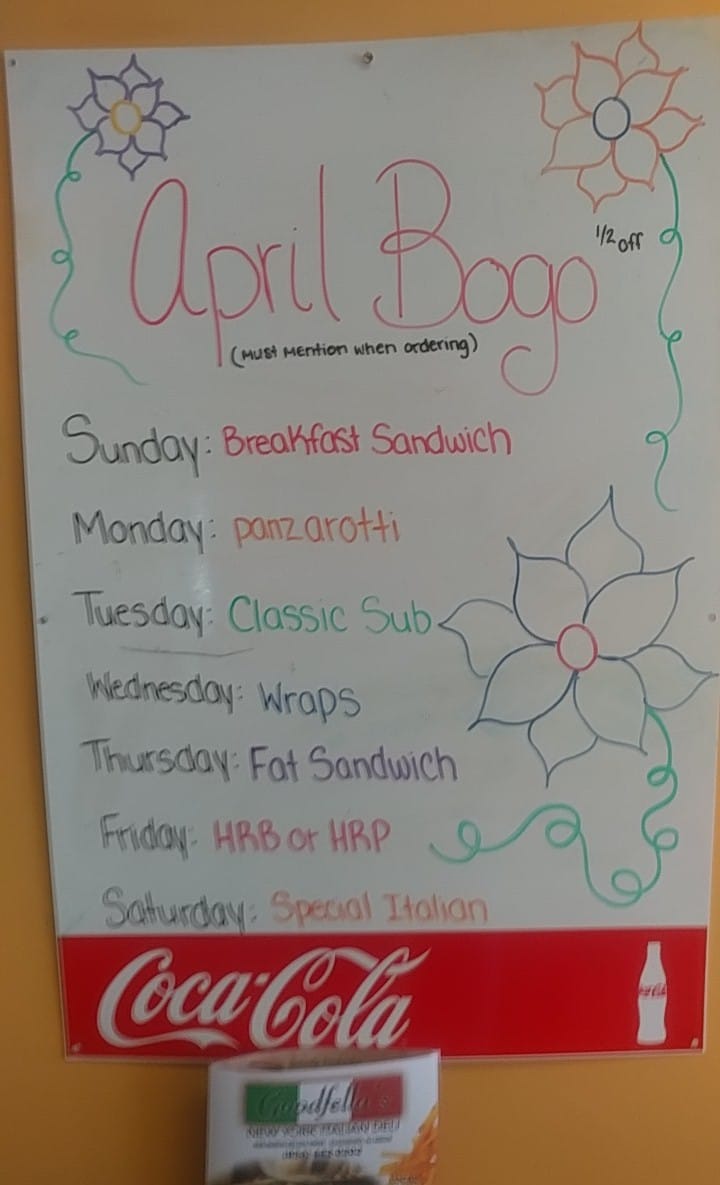 April Bogo 1/2 off
(Must Mention when ordering)
Sunday: Breakfast Sandwich
Monday: panzarotti
Tuesday: Classic Sub
Wednesday: Wraps
Thursday: Fat Sandwich
Friday: HRB or HRP
Saturday: Special Italian
Coca-Cola
Goodfella's
NEW YORK ITALIAN DELI